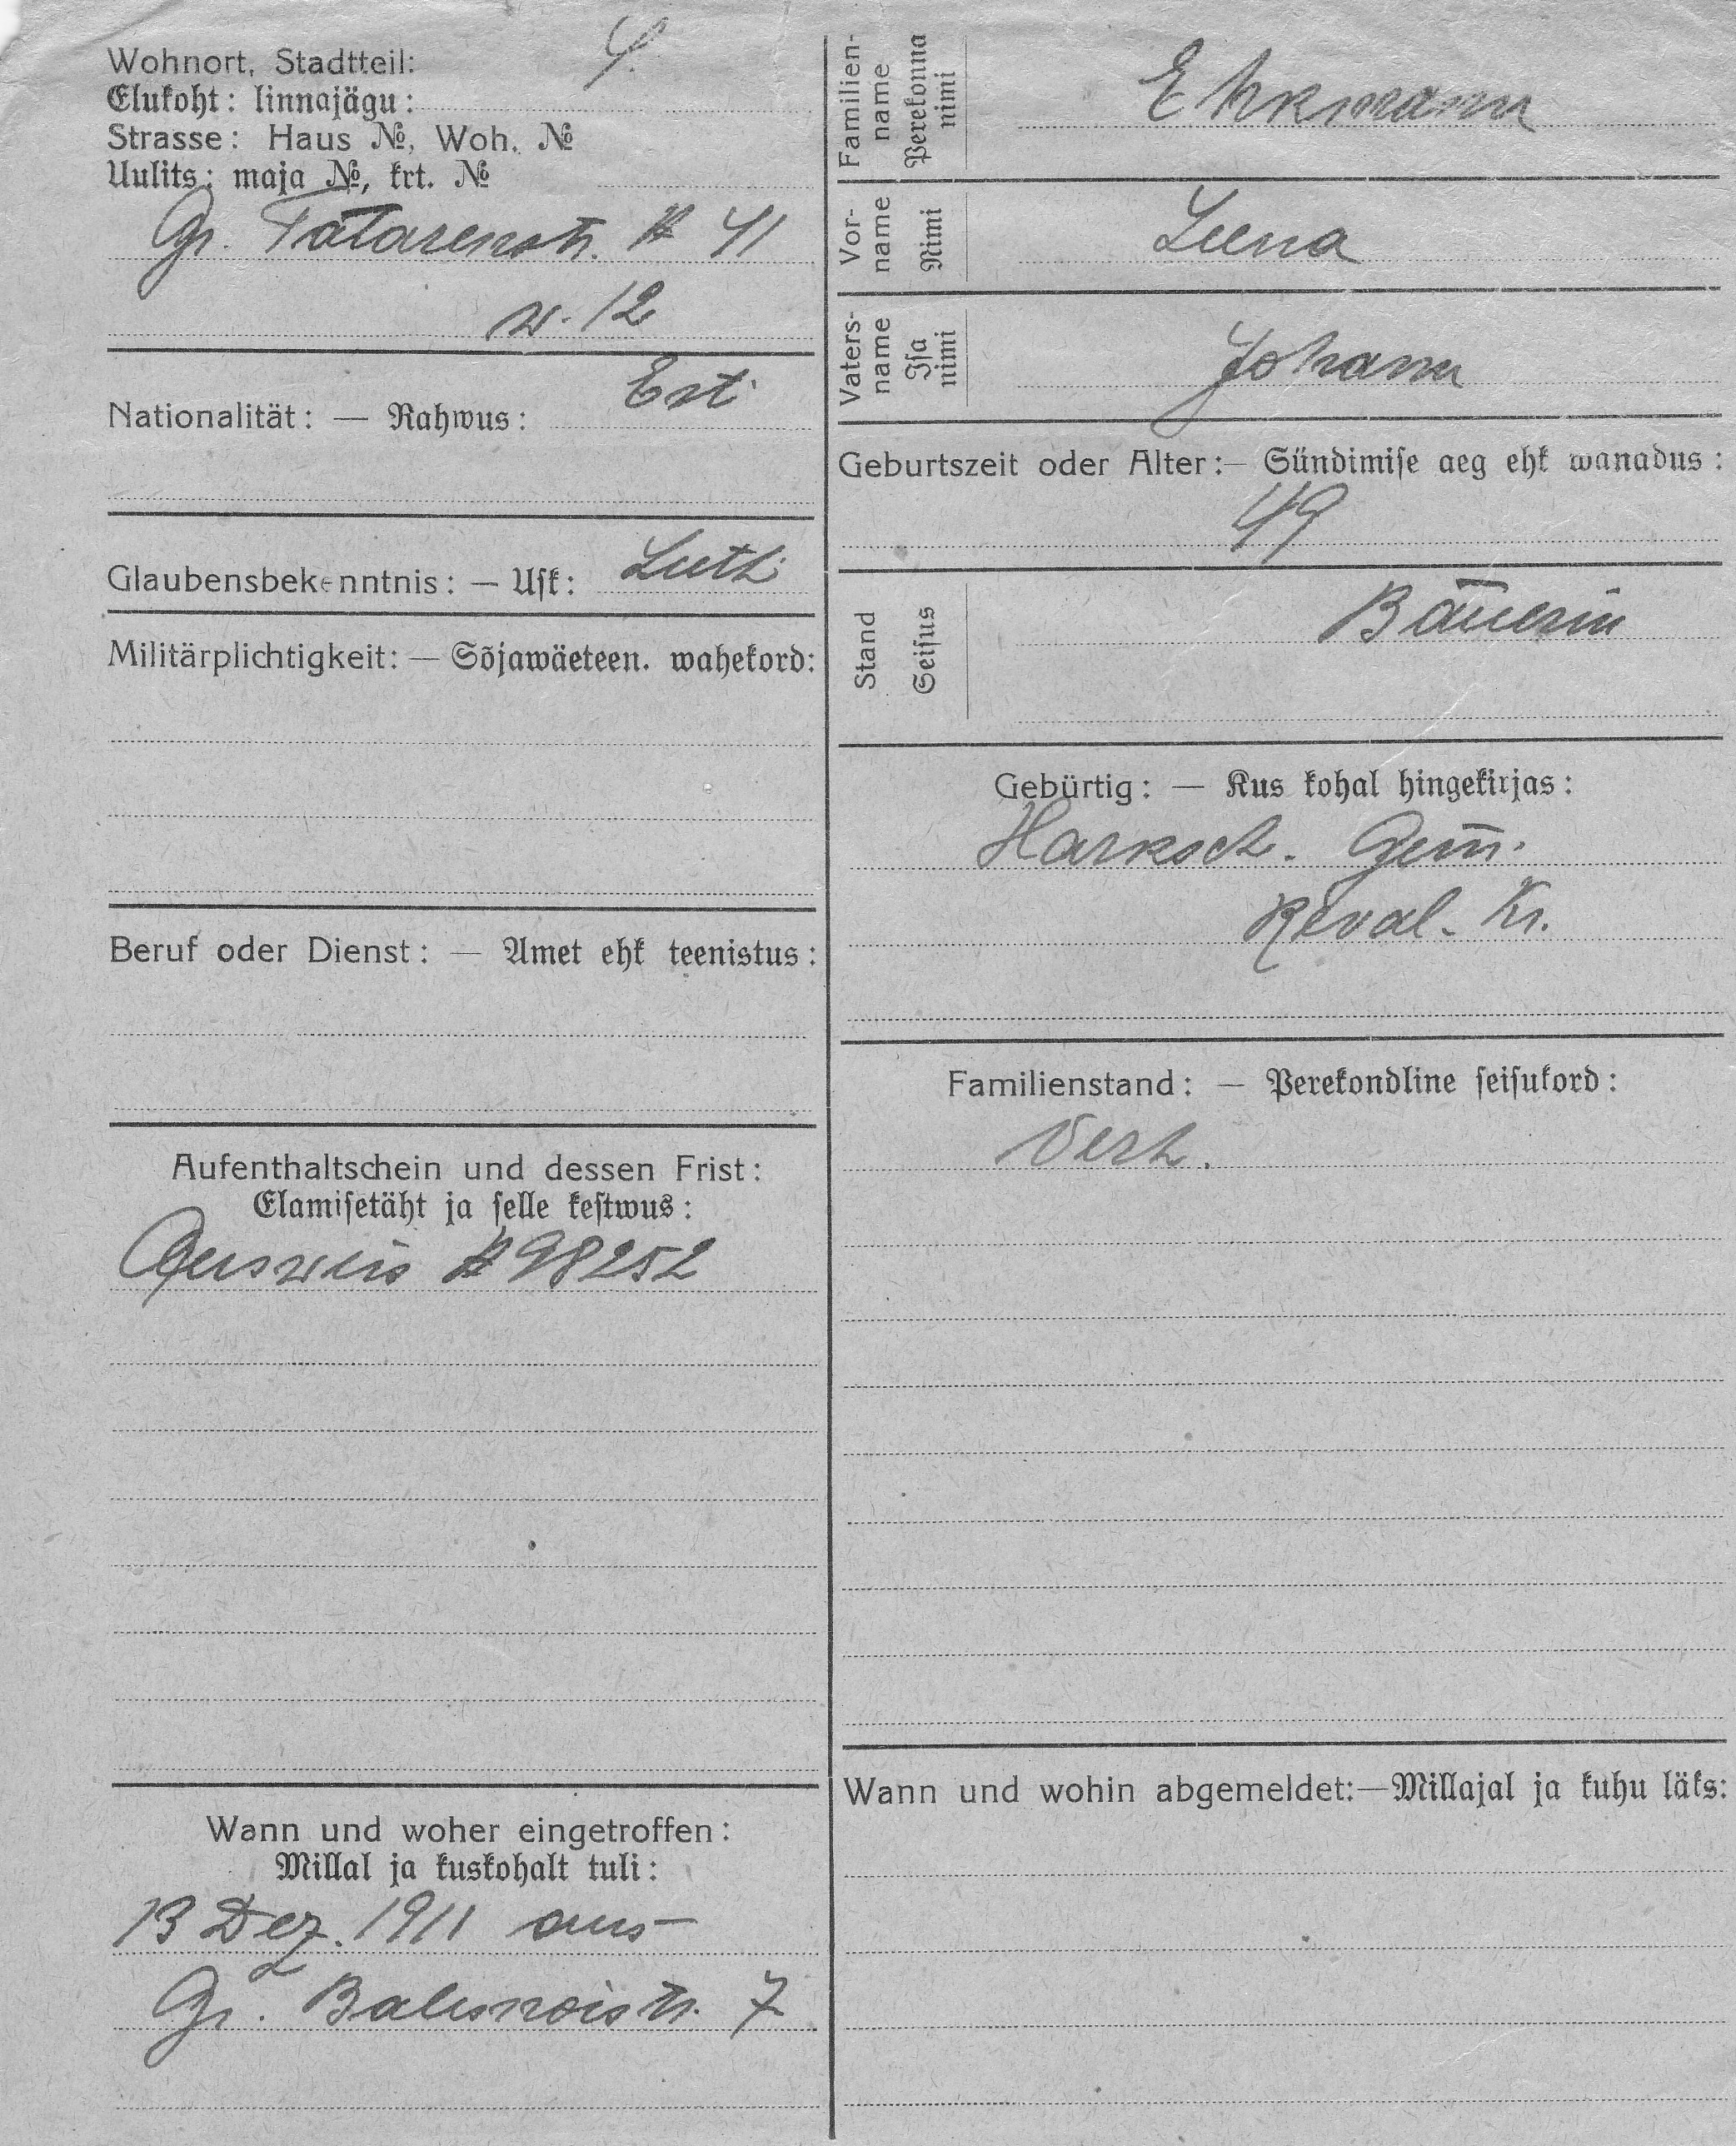 Wohnort, Stadtteil: 4.
Elukoht: linnajägu:
Strasse: Haus №, Woh. №
Uulits: maja №, krt. №
Gr. Tatarenstr. № 41
w. 12
Nationalität: — Rahwus: Est.
Glaubensbekenntnis: — Usk: Luth.
Militärplichtigkeit: — Sõjawäeteen. wahekord:
Beruf oder Dienst: — Amet ehk teenistus:
Aufenthaltschein und dessen Frist:
Elamisetäht ja selle kestwus:
Ausweis № 98252
Wann und woher eingetroffen:
Millal ja kuskohalt tuli:
13 Dez. 1911 aus
Gr. 7
Familien-
name
Perekonna
nimi
Ehrmann
Vor-
name
Nimi
Leena
Vaters-
name
Isa
nimi
Johann
Geburtszeit oder Alter: — Sündimise aeg ehk wanadus:
49
Stand
Seisus
Bäuerin
Gebürtig: — Kus kohal hingekirjas:
Harksch. Gem.
Reval. Kr.
Familienstand: — Perekondline seisukord:
Verh.
Wann und wohin abgemeldet: — Millajal ja kuhu läks: